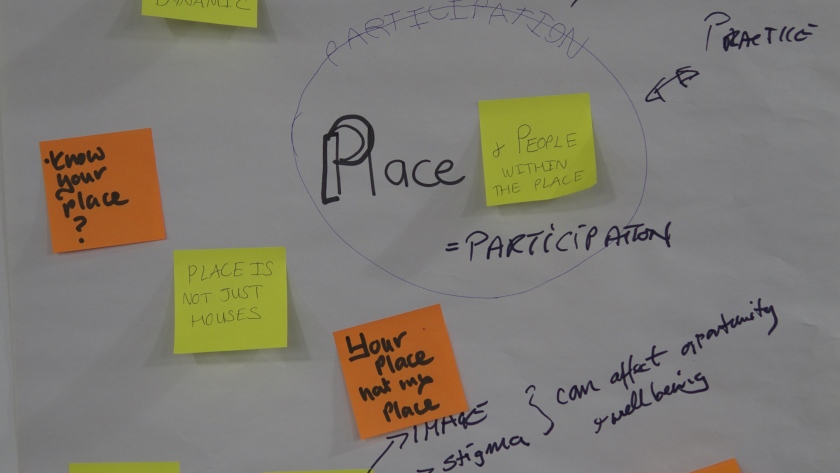 DYNAMIC
PARTICIPATION
PRACTICE
Place
& PEOPLE
WITHIN
THE PLACE
= PARTICIPATION
• Know
your
place
?
PLACE IS
NOT JUST
HOUSES
Your
Place
not my
Place
IMAGE
stigma
can affect oportunity
+ wellbeing